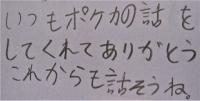 いつもポケカの話を
してくれてありがとう
これからも話そうね。